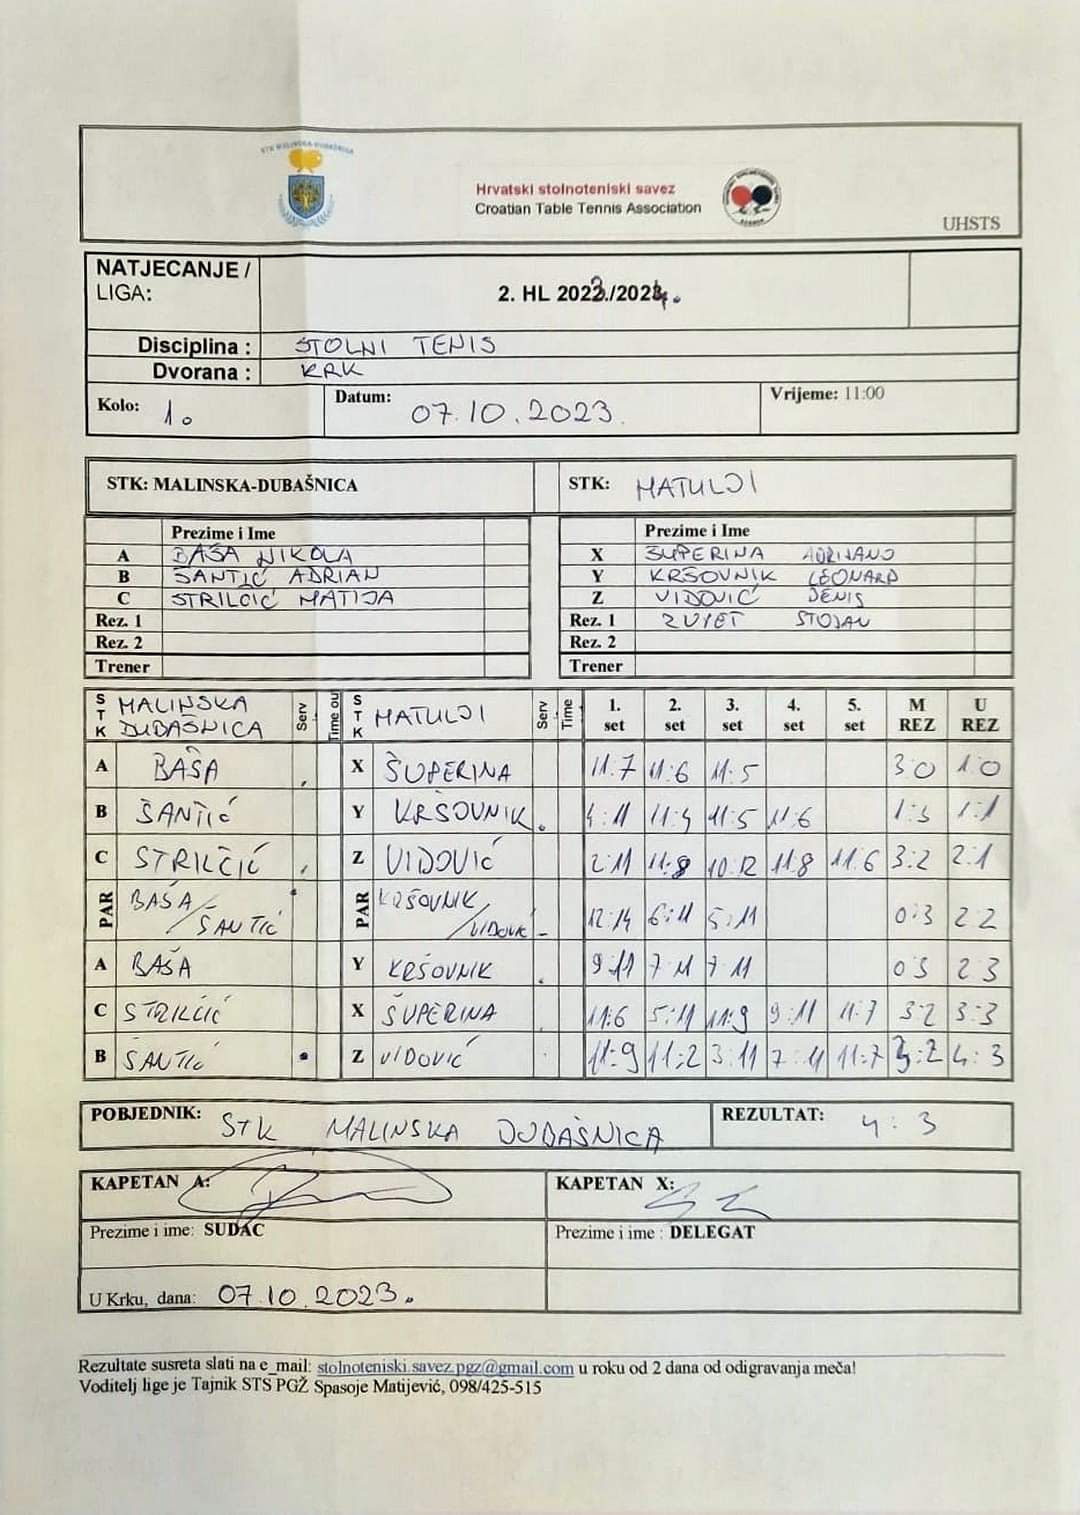 STK MALINSKA-DUBAŠNICA
Hrvatski stolnoteniski savez
Croatian Table Tennis Association
UHSTS
NATJECANJE / LIGA: 2. HL 2023./2024.
Disciplina : STOLNI TENIS
Dvorana : KRK
Kolo: 1. Datum: 07.10.2023. Vrijeme: 11:00
STK: MALINSKA-DUBAŠNICA STK: MATULJI
Prezime i Ime Prezime i Ime
A BAŠA NIKOLA X ŠUPERINA ADRIJANO
B ŠANTIĆ ADRIAN Y KRŠOVNIK LEONARD
C STRILČIĆ MATIJA Z VIDOVIĆ DENIS
Rez. 1 Rez. 1 ZUVET STOJAN
Rez. 2 Rez. 2
Trener Trener
STK MALINSKA DUBAŠNICA Serv Time ou STK MATULJI Serv Time 1. set 2. set 3. set 4. set 5. set M REZ U REZ
A BAŠA X ŠUPERINA 11:7 11:6 11:5 3:0 1:0
B ŠANTIĆ Y KRŠOVNIK 4:11 11:5 11:6 1:1
C STRILČIĆ Z VIDOVIĆ 2:11 11:8 10:12 11:8 11:6 3:2 2:1
PAR BAŠA / ŠANTIĆ PAR KRŠOVNIK / VIDOVIĆ 12:14 6:11 5:11 0:3 2:2
A BAŠA Y KRŠOVNIK 9:11 7:11 7:11 0:3 2:3
C STRILČIĆ X ŠUPERINA 11:6 5:11 11:9 9:11 11:7 3:2 3:3
B ŠANTIĆ Z VIDOVIĆ 11:9 11:2 3:11 7:11 11:7 3:2 4:3
POBJEDNIK: STK MALINSKA DUBAŠNICA REZULTAT: 4:3
KAPETAN A: KAPETAN X:
Prezime i ime: SUDAC Prezime i ime : DELEGAT
U Krku, dana: 07.10.2023.
Rezultate susreta slati na e_mail: stolnoteniski.savez.pgz@gmail.com u roku od 2 dana od odigravanja meča!
Voditelj lige je Tajnik STS PGŽ Spasoje Matijević, 098/425-515